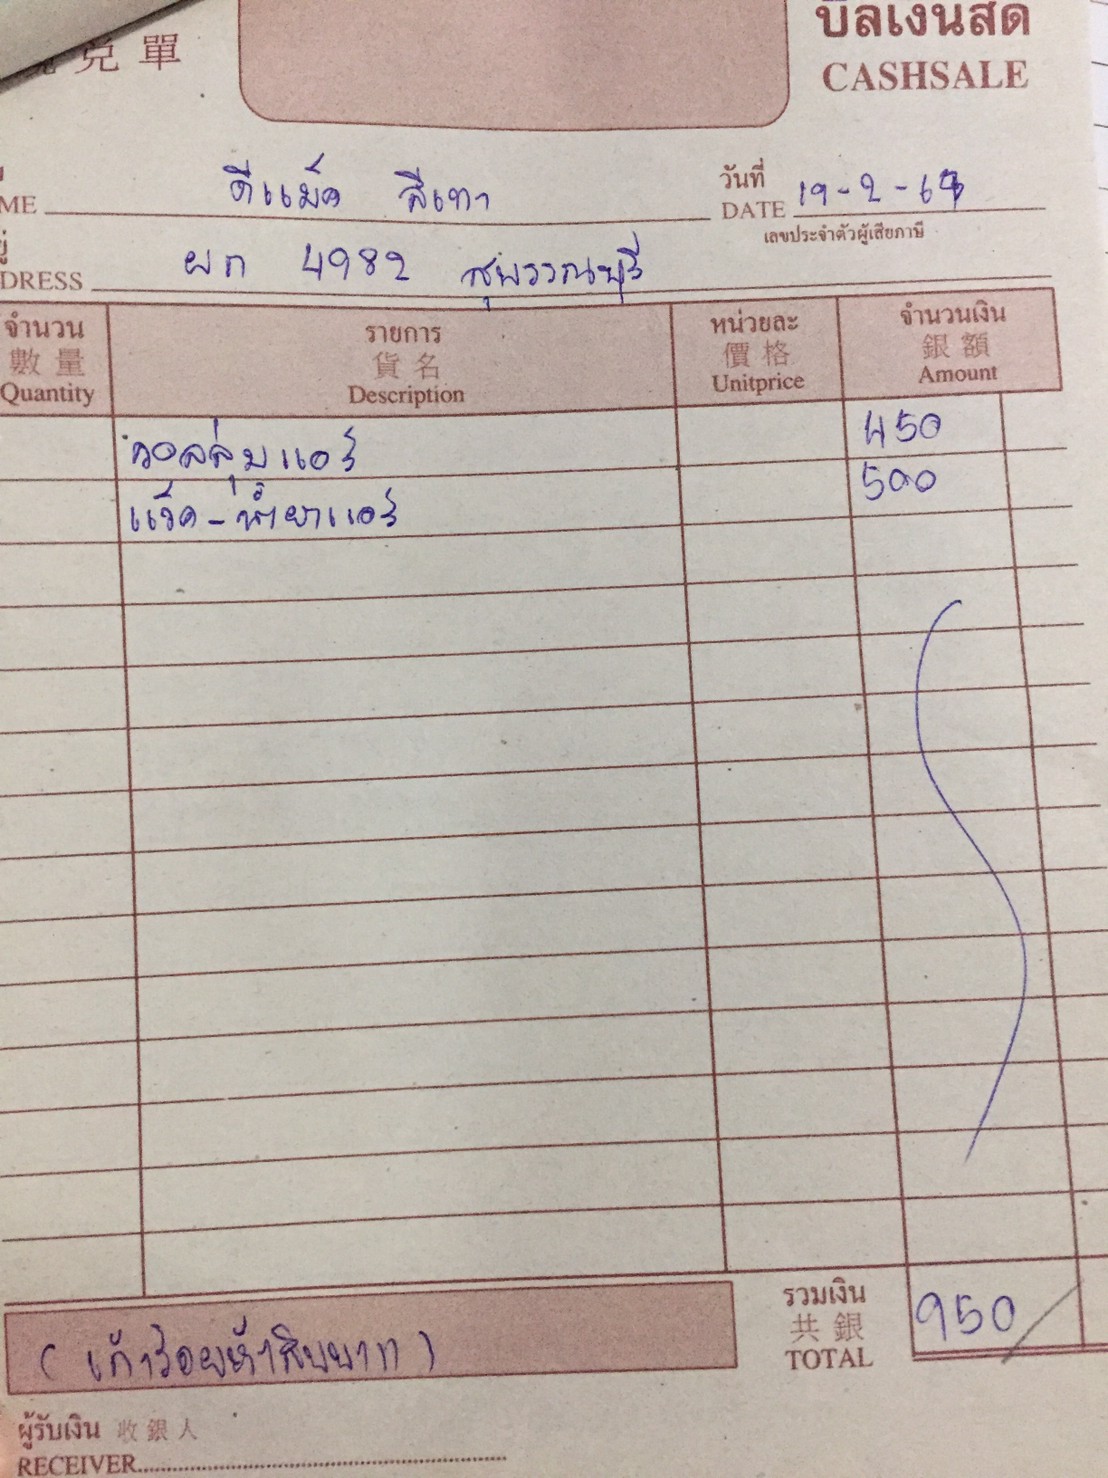 兌單
บิลเงินสด
CASHSALE
ME ดีแม็ค สีเทา
วันที่
DATE 19-2-67
เลขประจำตัวผู้เสียภาษี
DRESS ผก 4982 สุพรรณบุรี
จำนวน รายการ หน่วยละ จำนวนเงิน
數量 貨名 價格 銀額
Quantity Description Unitprice Amount
วอลลุ่มแอร์ 450
เช็ค-น้ำยาแอร์ 500
รวมเงิน
共銀
TOTAL 950
(เก้าร้อยห้าสิบบาท)
ผู้รับเงิน 收銀人
RECEIVER